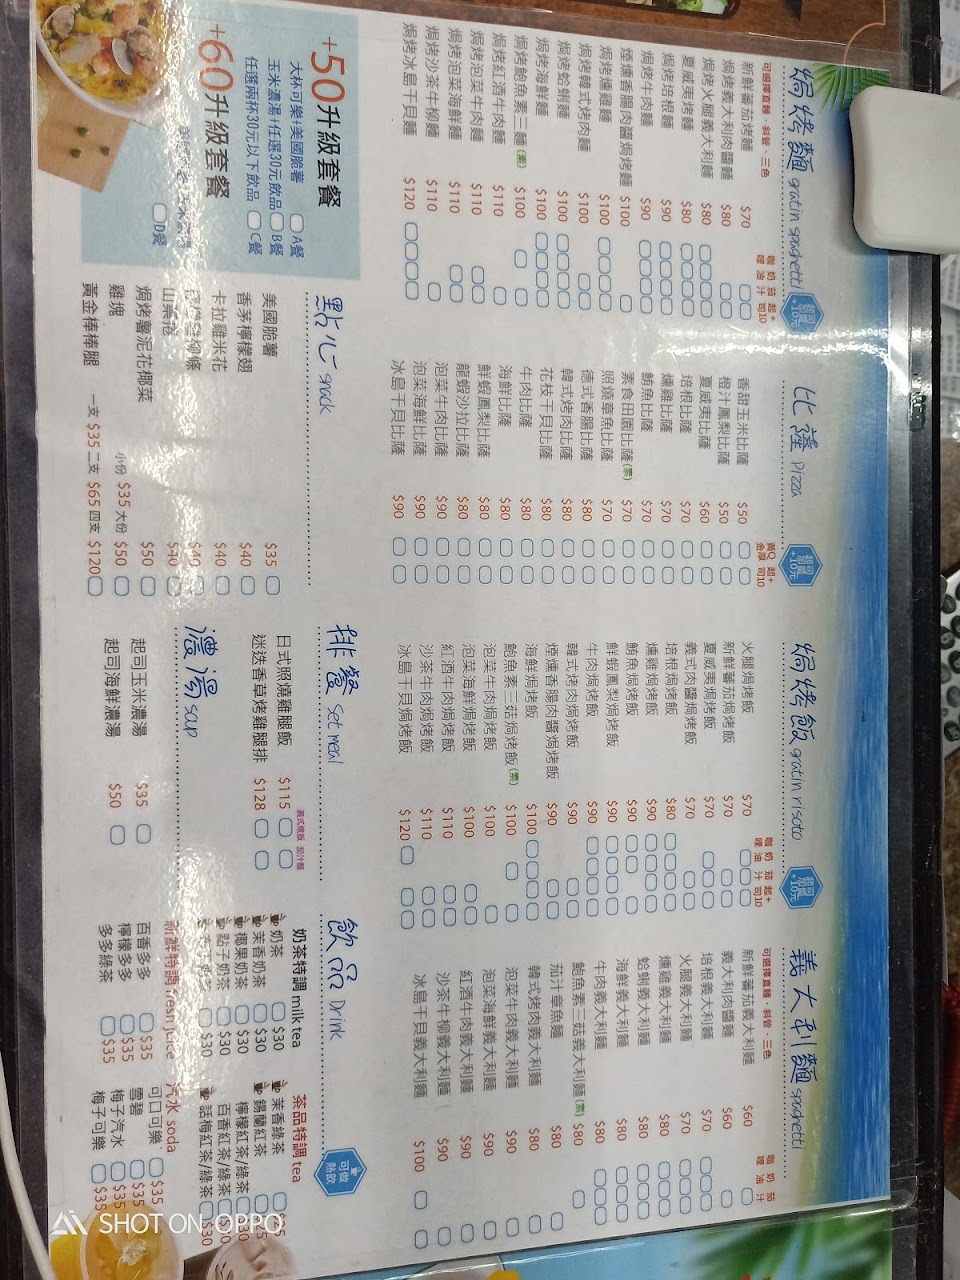 焗烤麵 gratin spaghetti
起司加量 +10元
可選擇直麵、斜管、三色
咖哩 奶油 茄汁 起+司10
新鮮蕃茄烤麵 $70
焗烤義大利肉醬麵 $80
焗烤火腿義大利麵 $80
夏威夷烤麵 $80
焗烤培根麵 $90
焗烤牛肉麵 $90
煙燻香腸肉醬焗烤麵 $100
焗烤燻雞麵 $100
焗烤韓式烤肉麵 $100
焗烤蛤蜊麵 $100
焗烤海鮮麵 $100
焗烤鮑魚素三麵(素) $100
焗烤紅酒牛肉麵 $110
焗烤泡菜牛肉麵 $110
焗烤泡菜海鮮麵 $110
焗烤沙茶牛柳麵 $110
焗烤冰島干貝麵 $120
比薩 Pizza
起司加量 +10元
黃金 Q厚 起+司10
香甜玉米比薩 $50
橙汁鳳梨比薩 $50
夏威夷比薩 $60
培根比薩 $70
燻雞比薩 $70
鮪魚比薩 $70
素食田園比薩(素) $70
照燒章魚比薩 $70
德式香腸比薩 $80
韓式烤肉比薩 $80
花枝干貝比薩 $80
牛肉比薩 $80
海鮮比薩 $80
鮮蝦鳳梨比薩 $80
龍蝦沙拉比薩 $80
泡菜牛肉比薩 $90
泡菜海鮮比薩 $90
冰島干貝比薩 $90
焗烤飯 gratin risoto
起司加量 +10元
咖哩 奶油 茄汁 起+司10
火腿焗烤飯 $70
新鮮蕃茄焗烤飯 $70
夏威夷焗烤飯 $70
義式肉醬焗烤飯 $70
培根焗烤飯 $80
燻雞焗烤飯 $90
鮪魚焗烤飯 $90
鮮蝦鳳梨焗烤飯 $90
牛肉焗烤飯 $90
韓式烤肉焗烤飯 $90
煙燻香腸肉醬焗烤飯 $90
海鮮焗烤飯 $100
鮑魚素三菇焗烤飯(素) $100
泡菜牛肉焗烤飯 $100
泡菜海鮮焗烤飯 $100
紅酒牛肉焗烤飯 $110
沙茶牛肉焗烤飯 $110
冰島干貝焗烤飯 $120
義大利麵 spaghetti
可選擇直麵、斜管、三色
咖哩 奶油 茄汁
新鮮蕃茄義大利麵 $60
義大利肉醬麵 $60
培根義大利麵 $70
火腿義大利麵 $70
燻雞義大利麵 $80
蛤蜊義大利麵 $80
海鮮義大利麵 $80
牛肉義大利麵 $80
鮑魚素三菇義大利麵(素) $80
茄汁章魚麵 $80
韓式烤肉義大利麵 $80
泡菜牛肉義大利麵 $90
泡菜海鮮義大利麵 $90
紅酒牛肉義大利麵 $90
沙茶牛柳義大利麵 $90
冰島干貝義大利麵 $100
+50升級套餐
大杯可樂+美國脆薯 A餐
玉米濃湯+任選30元飲品 B餐
任選兩杯30元以下飲品 C餐
+60升級套餐
D餐
點心 snack
美國脆薯 $35
香茅檸檬翅 $40
卡拉雞米花 $40
雞柳條 $40
山藥捲 $40
焗烤薯泥花椰菜 $50
雞塊 小份 $35 大份 $50
黃金棒棒腿 一支 $35 二支 $65 四支 $120
排餐 set meal
義式燉飯 茄汁麵
日式照燒雞腿飯 $115
迷迭香草烤雞腿排 $128
濃湯 soup
起司玉米濃湯 $35
起司海鮮濃湯 $50
飲品 Drink
可做熱飲
奶茶特調 milk tea
奶茶 $30
茉香奶茶 $30
椰果奶茶 $30
點子奶茶 $30
$30
新鮮特調 fresh juice
百香多多 $35
檸檬多多 $35
多多綠茶 $35
茶品特調 tea
茉香綠茶 $25
錫蘭紅茶 $25
檸檬紅茶/綠茶 $30
百香紅茶/綠茶 $30
話梅紅茶/綠茶 $30
汽水 soda
可口可樂 $35
雪碧 $35
梅子汽水 $35
梅子可樂 $35
SHOT ON OPPO